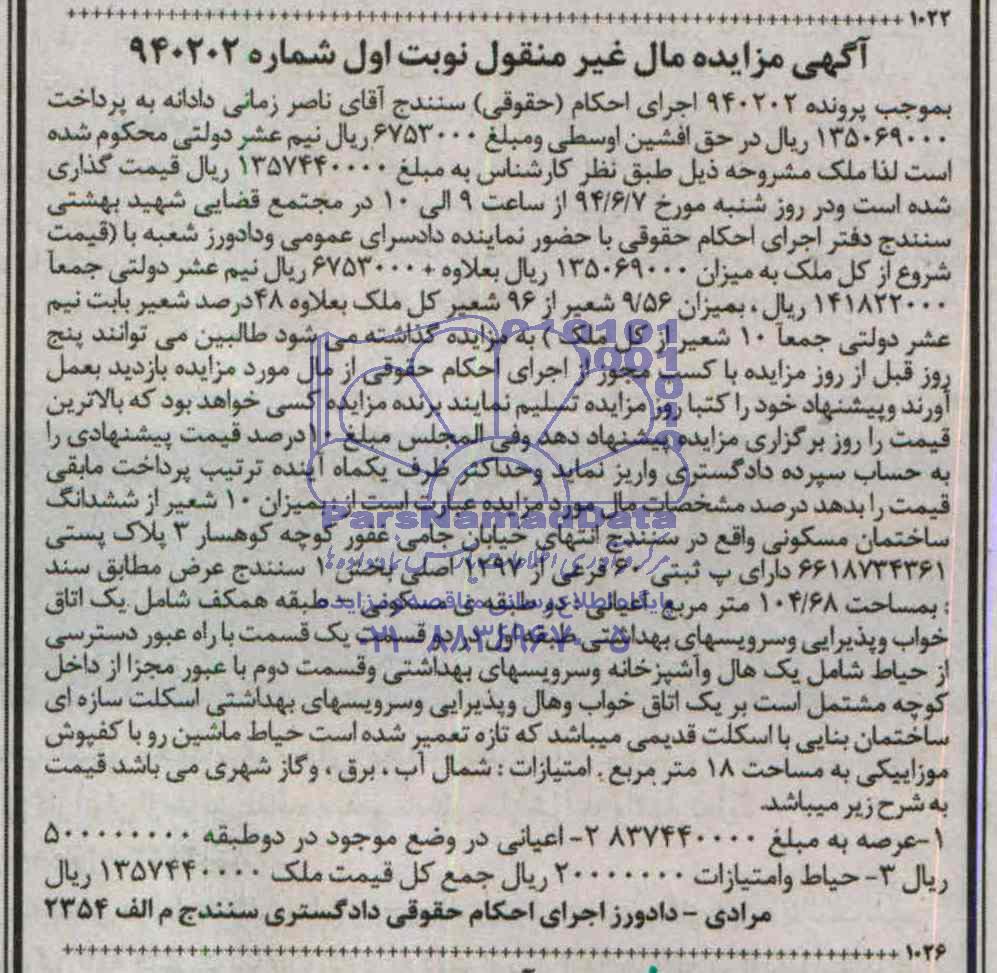 ۱۰۲۲
آگهی مزایده مال غیر منقول نوبت اول شماره ۹۴۰۲۰۲
بموجب پرونده ۹۴۰۲۰۲ اجرای احکام (حقوقی) سنندج آقای ناصر زمانی دادانه به پرداخت
۱۳۵۰۶۹۰۰۰ ریال در حق افشین اوسطی ومبلغ ۶۷۵۳۰۰۰ ریال نیم عشر دولتی محکوم شده
است لذا ملک مشروحه ذیل طبق نظر کارشناس به مبلغ ۱۳۵۷۴۴۰۰۰۰ ریال قیمت گذاری
شده است ودر روز شنبه مورخ ۹۴/۶/۷ از ساعت ۹ الی ۱۰ در مجتمع قضایی شهید بهشتی
سنندج دفتر اجرای احکام حقوقی با حضور نماینده دادسرای عمومی ودادورز شعبه با (قیمت
شروع از کل ملک به میزان ۱۳۵۰۶۹۰۰۰ ریال بعلاوه + ۶۷۵۳۰۰۰ ریال نیم عشر دولتی جمعاً
۱۴۱۸۲۲۰۰۰ ریال ، بمیزان ۹/۵۶ شعیر از ۹۶ شعیر کل ملک بعلاوه ۴۸درصد شعیر بابت نیم
عشر دولتی جمعاً ۱۰ شعیر از کل ملک ) به مزایده گذاشته می شود طالبین می توانند پنج
روز قبل از روز مزایده با کسب مجوز از اجرای احکام حقوقی از مال مورد مزایده بازدید بعمل
آورند وپیشنهاد خود را کتبا روز مزایده تسلیم نمایند برنده مزایده کسی خواهد بود که بالاترین
قیمت را روز برگزاری مزایده پیشنهاد دهد وفی المجلس مبلغ ۱۰درصد قیمت پیشنهادی را
به حساب سپرده دادگستری واریز نماید وحداکثر ظرف یکماه آینده ترتیب پرداخت مابقی
قیمت را بدهد درصد مشخصات مال مورد مزایده عبارت است از : بمیزان ۱۰ شعیر از ششدانگ
ساختمان مسکونی واقع در سنندج انتهای خیابان جامی غفور کوچه کوهسار ۳ پلاک پستی
۶۶۱۸۷۳۴۳۶۱ دارای پ ثبتی ۶۰ فرعی از ۱۲۹۷ اصلی بخش ۱ سنندج عرض مطابق سند
: بمساحت ۱۰۴/۶۸ متر مربع اعیانی : دو طبقه ی مسکونی - طبقه همکف شامل یک اتاق
خواب وپذیرایی وسرویسهای بهداشتی طبقه اول در دو قسمت یک قسمت با راه عبور دسترسی
از حیاط شامل یک هال وآشپزخانه وسرویسهای بهداشتی وقسمت دوم با عبور مجزا از داخل
کوچه مشتمل است بر یک اتاق خواب وهال وپذیرایی وسرویسهای بهداشتی اسکلت سازه ای
ساختمان بنایی با اسکلت قدیمی میباشد که تازه تعمیر شده است حیاط ماشین رو با کفپوش
موزاییکی به مساحت ۱۸ متر مربع . امتیازات : شمال آب ، برق ، وگاز شهری می باشد قیمت
به شرح زیر میباشد.
۱-عرصه به مبلغ ۸۳۷۴۴۰۰۰۰ ۲- اعیانی در وضع موجود در دوطبقه ۵۰۰۰۰۰۰۰۰
ریال ۳- حیاط وامتیازات ۲۰۰۰۰۰۰۰ ریال جمع کل قیمت ملک ۱۳۵۷۴۴۰۰۰۰ ریال
مرادی - دادورز اجرای احکام حقوقی دادگستری سنندج م الف ۲۳۵۴
۱۰۲۶
ParsNamadData
پایگاه اطلاع رسانی مناقصه و مزایده
۰۲۱-۸۸۳۴۹۶۷۰-۵